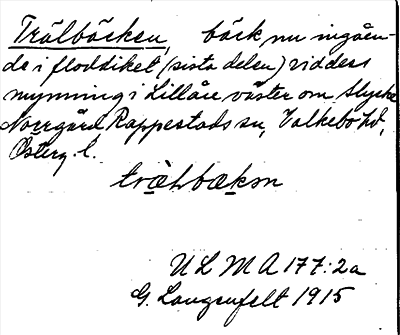 Trälbäcken, bäck nu ingåen-
de i floddiket (sista delen) vid dess
mynning i Lillåre väster om Slycke
Norrgård Rappestads sn, Valkebo hd,
Österg. l.
trælbækən
ULMA 177:2a
G. Langenfelt 1915